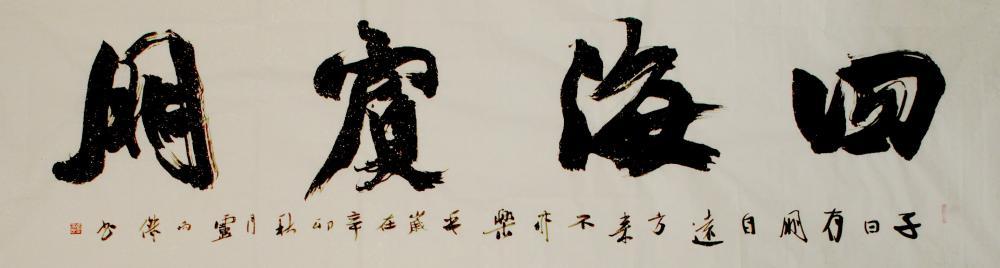 四海賓朋
子曰有朋自遠方來不亦樂乎歲在辛卯秋月靈傑书